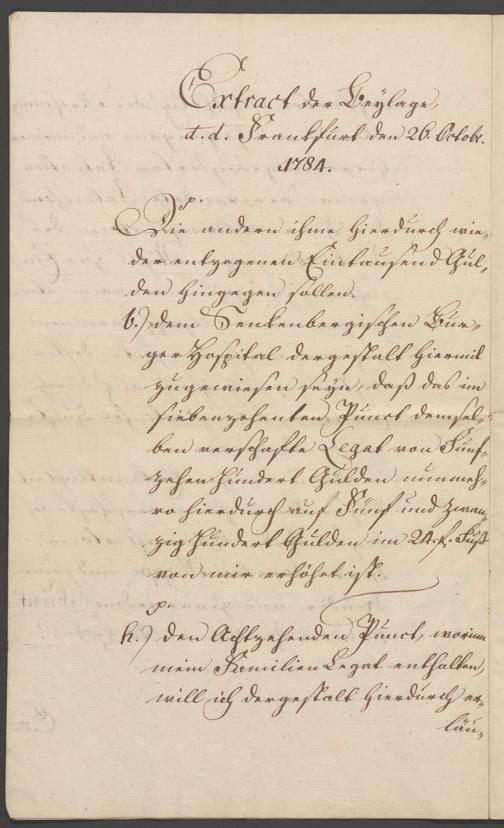 Extract der Beylage,
d. d. Franckfurt den 26. Octobr.
1784.
p.
Die andern ihme hierdurch wie-
der entzogenen Eintausend Gul-
den hingegen sollen.
b.) dem Senkenbergischen Bür-
ger Hospital dergestalt hiermit
zugewiesen seyn, daß das im
siebenzehenten Punct demsel-
ben verschafte Legat von Funf-
zehen hundert Gulden nunmeh-
ro hierdurch auf Fünf und zwan-
zig hundert Gulden im 24. f. Fuß
von mir erhöhet ist.
p.
h.) den Achtzehenden Punct, worinn
mein Familien Legat enthalten,
will ich dergestalt hierdurch er-
läu-